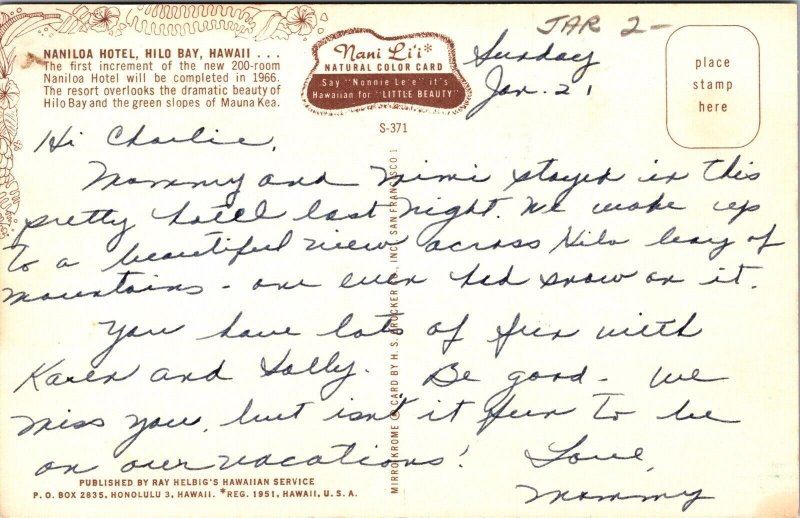 JAR 2-
NANILOA HOTEL, HILO BAY, HAWAII . . .
The first increment of the new 200-room
Naniloa Hotel will be completed in 1966.
The resort overlooks the dramatic beauty of
Hilo Bay and the green slopes of Mauna Kea.
Nani Li'i*
NATURAL COLOR CARD
Say "Nonnie Lee" it's
Hawaiian for "LITTLE BEAUTY"
S-371
place
stamp
here
Sunday
Jan. 21
Hi Charlie,
Mommy and Mimi stayed in this
pretty hotel last night. We wake up
to a beautiful view across Hilo bay of
mountains - one even had snow on it.
You have lots of fun with
Karen and Sally. Be good - we
miss you, but isn't it fun to be
on our vacations! Love,
Mommy
MIRRO-KROME ® CARD BY H. S. CROCKER CO., INC., SAN FRANCISCO 1
PUBLISHED BY RAY HELBIG'S HAWAIIAN SERVICE
P. O. BOX 2835, HONOLULU 3, HAWAII. *REG. 1951, HAWAII, U. S. A.